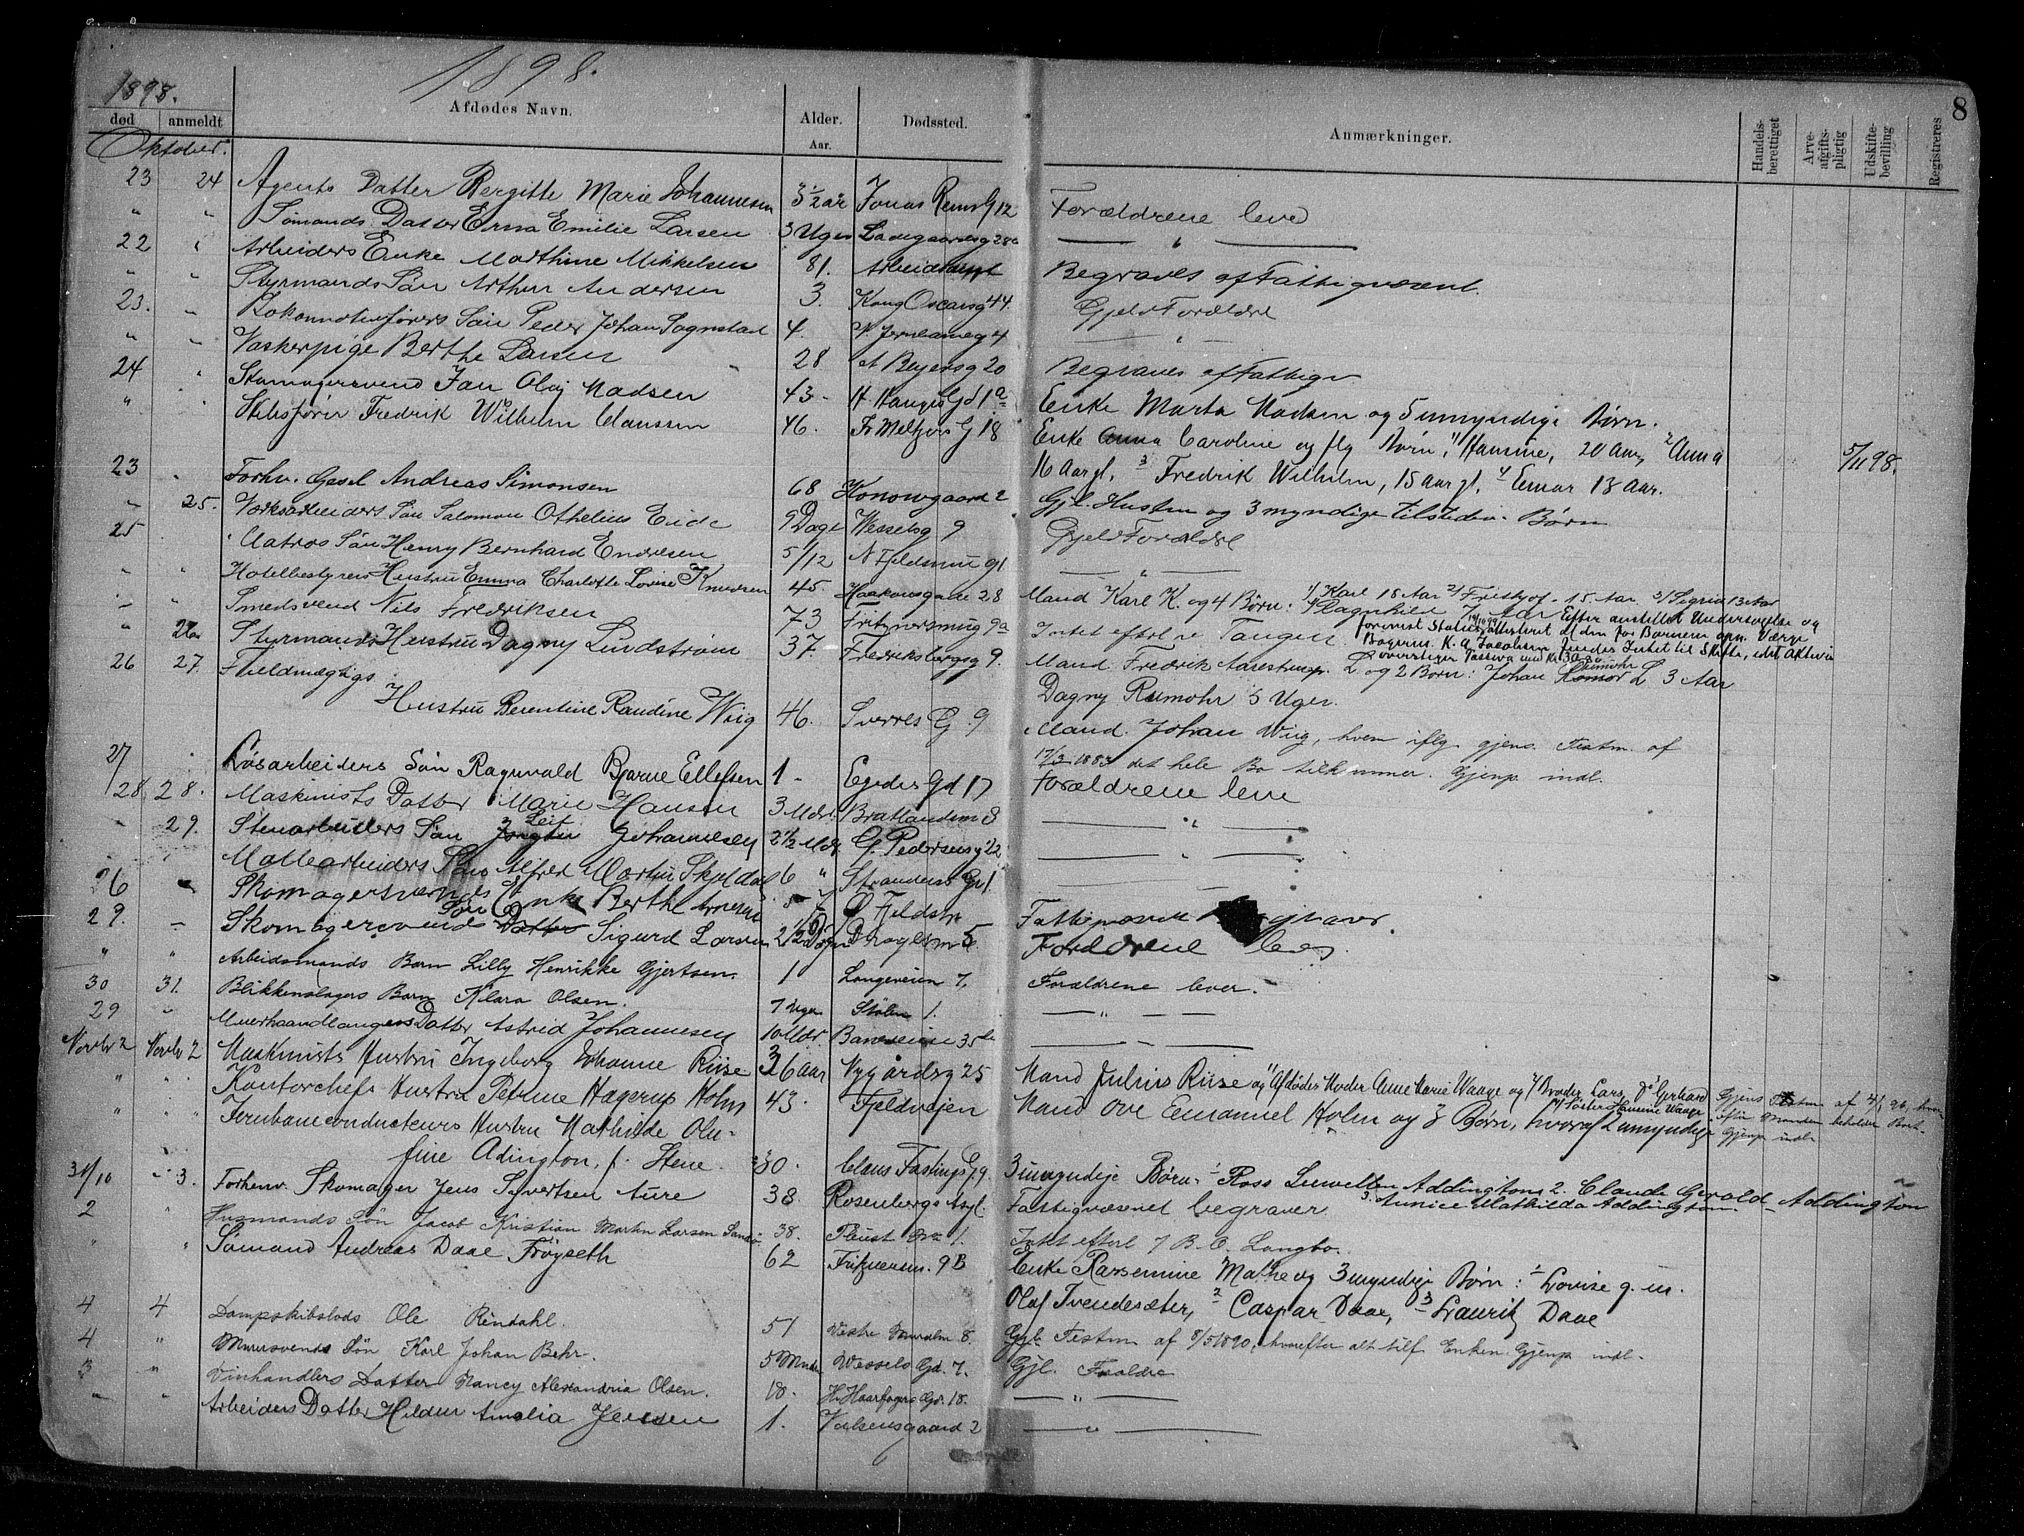 1898.
8
1898.
død anmeldt Afdødes Navn. Alder. Aar. Dødssted. Anmærkninger. Handels-berettiget Arve-afgifts-pligtig Udskifte-bevilling Registreres
Oktober.
23 24 Agents Datter Bergitte Marie Johannesen 3 1/2 aar Jonas Reins G 12 Forældrene leve
" " Sømands Datter Erna Emilie Larsen 3 Uger Ladegaardsg 28a — " —
22 " Arbeiders Enke Marthine Mikkelsen 81. Arbeidsanst Begraves af Fattigvæsenet.
" " Styrmands Søn Arthur Andersen 3. Kong Oscarsg 44. Gjel Forældre
23. " Lokomotivførers Søn Peder Johan Sognstad 4. 4 — " —
" " Vaskerpige Berthe Larsen 28 Beyersg 20 Begraves af Fattigv
24 " Skomagersvend Jan Olaj Madsen 43 - H. Hauges Gd 1a Enke Marta Madsen og 5 umyndige Børn.
" Skibsfører Fredrik Wilhelm Clausen 46. Fr Meltzers G 18 Enke Anna Caroline og flg Børn: 1) Hansine, 20 Aar, 2 Anna
16 Aar gl. 3 Fredrik Wilhelm, 15 Aar gl, 4 Einar 13 Aar. 5/11 98.
23 " Forhv. Gesel Andreas Simonsen 68 Konowgaard 2 Gjl. Hustru og 3 myndige tilstedev. Børn
" 25. Værksarbeiders Søn Salomon Othelius Eide 9 Dage Wesselsg 9 Gjel Forældre
25 " Matros Søn Henry Bernhard Endresen 5/12 N Fjeldsmu 91 — " —
" " Hotelbestyrers Hustru Emma Charlotte Lovise Knudsen 45. Haakonsgaden 28 Mand Karl K. og 4 Børn: 1) Karl 18 Aar 2) Fritjof 15 Aar. 3) Sigrid 13 Aar
4) Ragnhild 7 Aar Efter anstillet Undersøgelse og
" " Smedsvend Nils Fredriksen 73 Fritznersmug 9a Intet efterl
" 26 Styrmands Hustru Dagny Lindstrøm 37. Fredriksbergsg 9. Mand. Fredrik L. og 2 Børn: Johan L 3 Aar
Dagny Rumohr 5 Uger.
26 27. Fuldmægtigs
Hustru Berentine Randine Wiig 46. Sverres G. 9 Mand. Johan Wiig, hvem iflg gjens. Testm. af
17/3 1883 det hele Bo tilkommer. Gjenp. indl.
27 " Løsarbeiders Søn Ragnvald Bjarne Ellefsen 1 - Egedes Gd 17 Forældrene leve
28 28. Maskinists Datter Marie Hansen 3 Mdr. Bratlandsm 8 — " —
" 29. Stenarbeiders Søn Leif Johannesen 2 1/2 Mdr G. Pedersensg 22 — " —
" Møllearbeiders Søn Alfred Martin Skjeldal 6 " Strandens Gr 1 —
26 " Skomagersvends Enke Berthe Fattigvæsenet
29. " Skomagersvends Søn Sigurd Larsen 2 1/2 Døgn 5. Forældrene leve
" " Arbeidsmands Barn Lilly Henrikke Gjertsen. 1 Langeveien 7. Forældrene lever.
30 31. Blikkenslagers Barn Klara Olsen. 7 Uger Stølen 1. — " —
29 " Muerhaandlangers Datter Astrid Johannesen 10 Mdr. Baneveien 35 — " —
Novbr 2 Novbr 2 Maskinists Hustru Ingeborg Johanne Riise 36 aar Nygårdsg 25 Mand Julius Riise og 1) Afdødes Moder Anne Marie Waage og 2) Broder Lars, 3 Gerhard
4) Søster Hansine Waage
" " Kontorchefs Hustru Petrine Hagerup Holm 43. Fjeldveien Mand Ove Emanuel Holm og 3 Børn, hvoraf 2 umyndige Gjens Testm af 4/1 96, hvor
efter Manden beholder Boet.
Gjenp indl.
" " Jernbaneconducteurs Hustru Mathilde Olu-
fine Adington, f. Stene. 30. Claus Fastings G. 9. 3 umyndige Børn: 1 Ross Lewellen Addington 2. Claude Gerald Addington
3. Eunice Mathilda Addington.
31/10 " 3. Forhenv. Skomager Jens Syvertsen Aure 38. Rosenbergs Asyl. Fattigvæsenet begraver
2 " Husmands Søn Jacob Kristian Martin Larsen 38. 1. Intet efterl
" " Sømand Andreas Daae Frøyseth 62 Fritznersm. 9B Enke Rasmine Mathe og 3 myndige Børn: 1 Lovise g. m.
Olaf Tvendesæter, 2 Caspar Daae, 3 Lauritz Daae
4 4 Dampskibslods Ole Rindahl. 51 Vestre Muralm 8. Gjl. Testm af 8/5 1890, hvorefter alt tilf Enken. Gjenp indl.
4 " Murersvends Søn Karl Johan Behr. 5 Mnder Wessels Gd. 7. Gjl. Foraldre
3 " Vinhandlers Datter Nancy Alexandria Olsen. 18. H. Haarfagers Gd. 18. — " —
" " Arbeiders Datter Hildur Amalia Jensen 1. Veilsensgaard 2 — " —